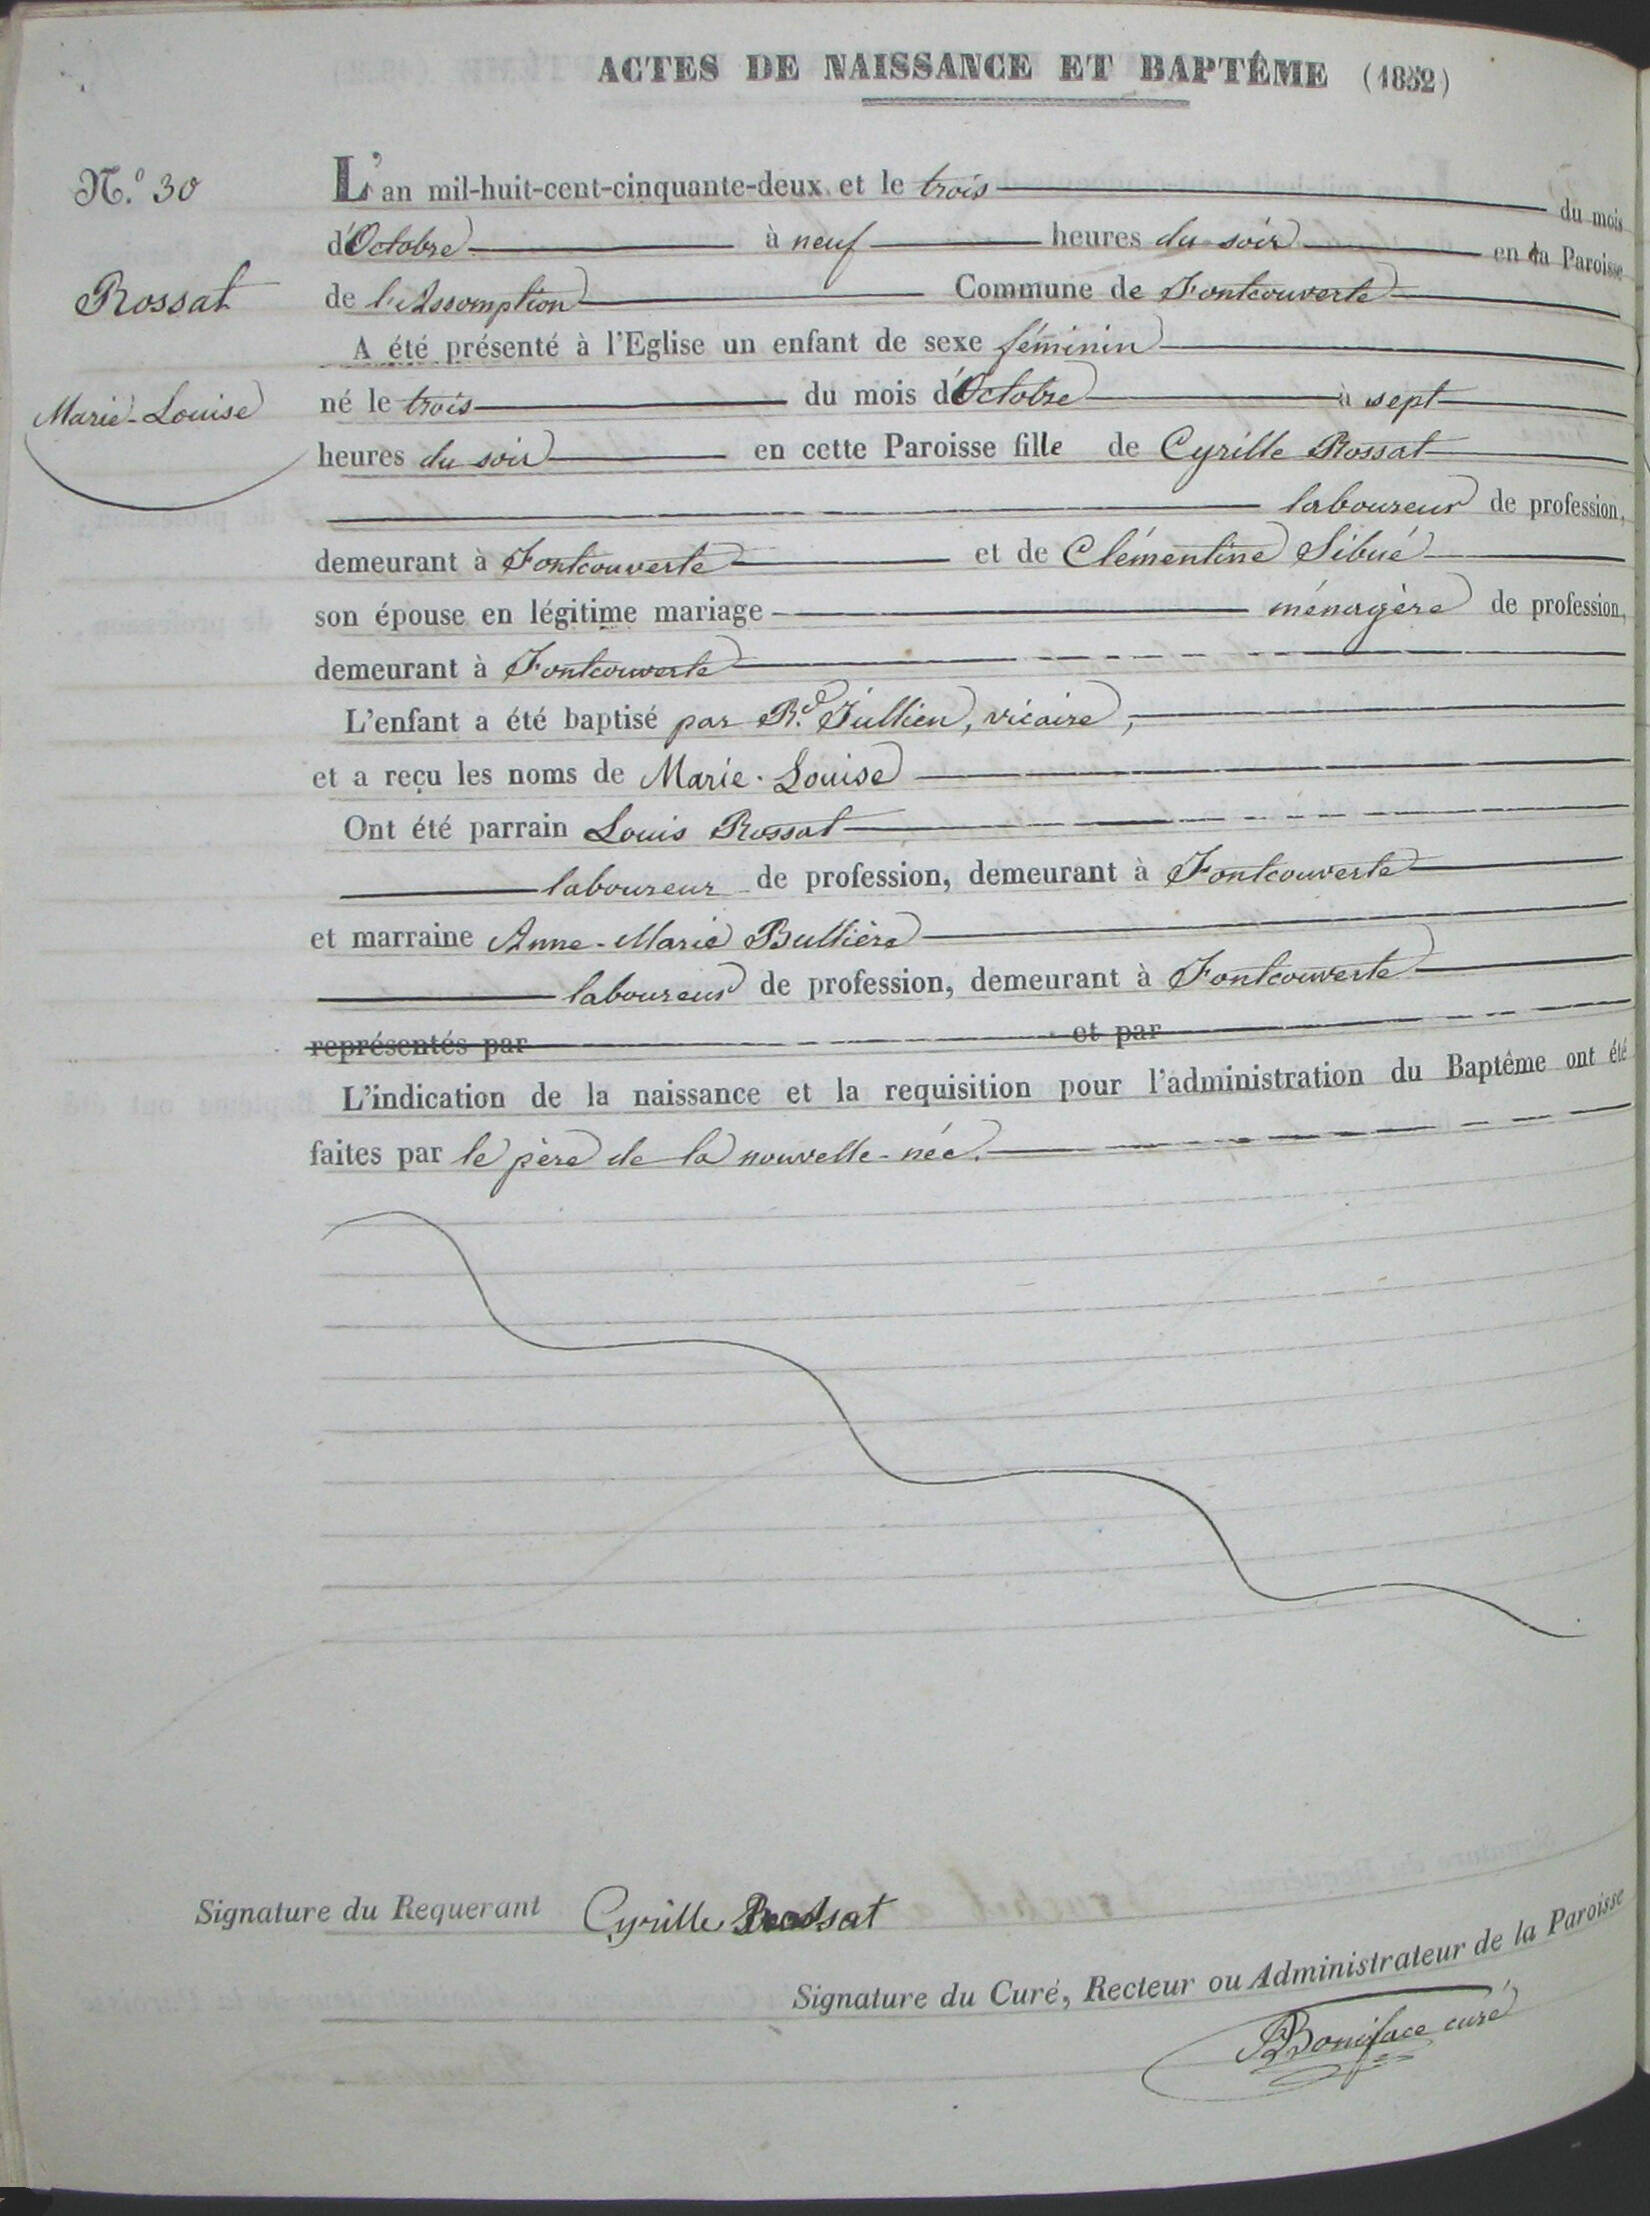 ACTES DE NAISSANCE ET BAPTÊME (1852)
N.º 30
L'an mil-huit-cent-cinquante-deux et le trois du mois
d'Octobre à neuf heures du soir en la Paroisse
Rossat
de l'Assomption Commune de Fontcouverte
A été présenté à l'Eglise un enfant de sexe féminin
Marie-Louise
né le trois du mois d'Octobre à sept
heures du soir en cette Paroisse fille de Cyrille Rossat
laboureur de profession,
demeurant à Fontcouverte et de Clémentine Sibué
son épouse en légitime mariage ménagère de profession,
demeurant à Fontcouverte
L'enfant a été baptisé par R.d Jullien, vicaire,
et a reçu les noms de Marie-Louise
Ont été parrain Louis Rossat
laboureur de profession, demeurant à Fontcouverte
et marraine Anne-Marie Bullière
laboureur de profession, demeurant à Fontcouverte
représentés par et par
L'indication de la naissance et la requisition pour l'administration du Baptême ont été
faites par le père de la nouvelle-née.
Signature du Requerant Cyrille Rossat
Signature du Curé, Recteur ou Administrateur de la Paroisse
Boniface curé